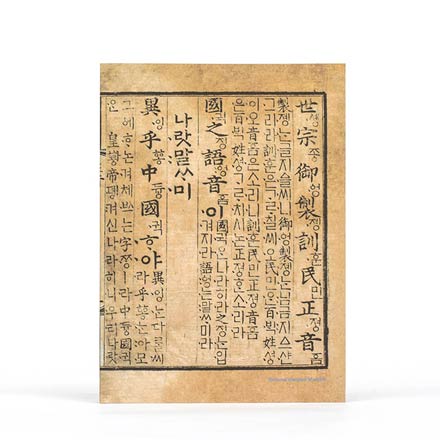 世솅宗종御엉製졩訓훈民민正졍音흠
製졩는글지ᅀᅳᆯ씨니御엉製졩는님금지ᅀᅳ샨
그리라訓훈은ᄀᆞᄅᆞ칠씨오民민은百ᄇᆡᆨ姓셩
이오音흠은소리니訓훈民민正졍音흠
은百ᄇᆡᆨ姓셩ᄀᆞᄅᆞ치시논正졍ᄒᆞᆫ소리라
國귁之징語엉音흠이
國귁ᄋᆞᆫ나라히라之징ᄂᆞᆫ입
겨지라語엉는말ᄊᆞ미라
나랏말ᄊᆞ미
異잉乎ᅘᅩᆼ中듕國귁ᄒᆞ야
異잉ᄂᆞᆫ다ᄅᆞᆯ씨
라乎ᅘᅩᆼᄂᆞᆫ아모
그ᅌᅦᄒᆞ논겨체ᄡᅳ는字ᄍᆞᆼㅣ라中듕國귁
ᄋᆞᆫ皇ᅘᅪᆼ帝뎽겨신나라히니우리나랏
National Hangeul Museum